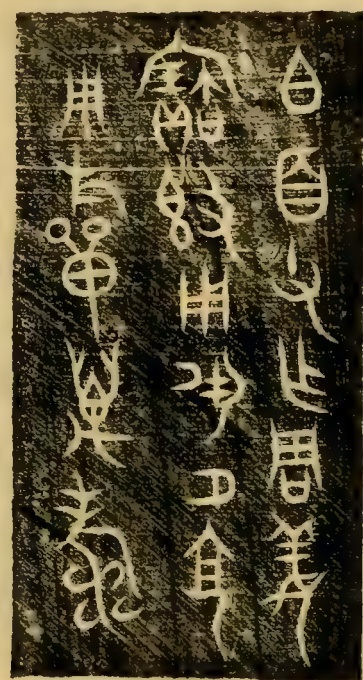 白百父乍周姜
寶𣪘用夙夕享
用𣄨萬壽